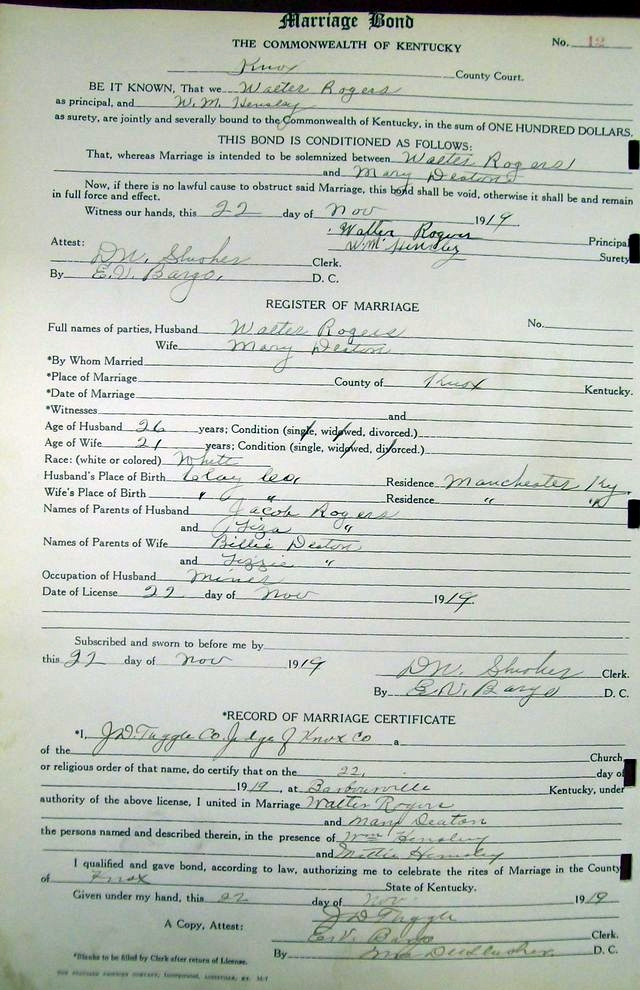 Marriage Bond
THE COMMONWEALTH OF KENTUCKY No. 12
Knox County Court.
BE IT KNOWN, That we Walter Rogers
as principal, and W. M. Hensley
as surety, are jointly and severally bound to the Commonwealth of Kentucky, in the sum of ONE HUNDRED DOLLARS.
THIS BOND IS CONDITIONED AS FOLLOWS:
That, whereas Marriage is intended to be solemnized between Walter Rogers
and Mary Deaton
Now, if there is no lawful cause to obstruct said Marriage, this bond shall be void, otherwise it shall be and remain
in full force and effect.
Witness our hands, this 22 day of Nov 1919
Walter Rogers Principal
Attest: W.M. Hensley Surety
D.W. Slusher Clerk.
By E.V. Bargo, D. C.
REGISTER OF MARRIAGE
Full names of parties, Husband Walter Rogers No.
Wife Mary Deaton
*By Whom Married
*Place of Marriage County of Knox Kentucky.
*Date of Marriage
*Witnesses and
Age of Husband 26 years; Condition (single, widowed, divorced.)
Age of Wife 21 years; Condition (single, widowed, divorced.)
Race: (white or colored) White
Husband's Place of Birth Clay Co, Residence Manchester Ky.
Wife's Place of Birth " " Residence " "
Names of Parents of Husband Jacob Rogers
and Liza "
Names of Parents of Wife Billie Deaton
and Lizzie "
Occupation of Husband Miner
Date of License 22 day of Nov 1919.
Subscribed and sworn to before me by
this 22 day of Nov 1919
D.W. Slusher Clerk.
By E.V. Bargo D. C.
*RECORD OF MARRIAGE CERTIFICATE
*I, J.D. Tuggle Co Judge of Knox Co a
of the Church,
or religious order of that name, do certify that on the 22, day of
1919, at Barbourville Kentucky, under
authority of the above license, I united in Marriage Walter Rogers
and Mary Deaton
the persons named and described therein, in the presence of Wm Hensley
and Mittie Hensley
I qualified and gave bond, according to law, authorizing me to celebrate the rites of Marriage in the County
of Knox State of Kentucky.
Given under my hand, this 22 day of Nov. 1919
J D Tuggle
A Copy, Attest: E.V. Bargo Clerk.
By D. C.
*Blanks to be filled by Clerk after return of License.